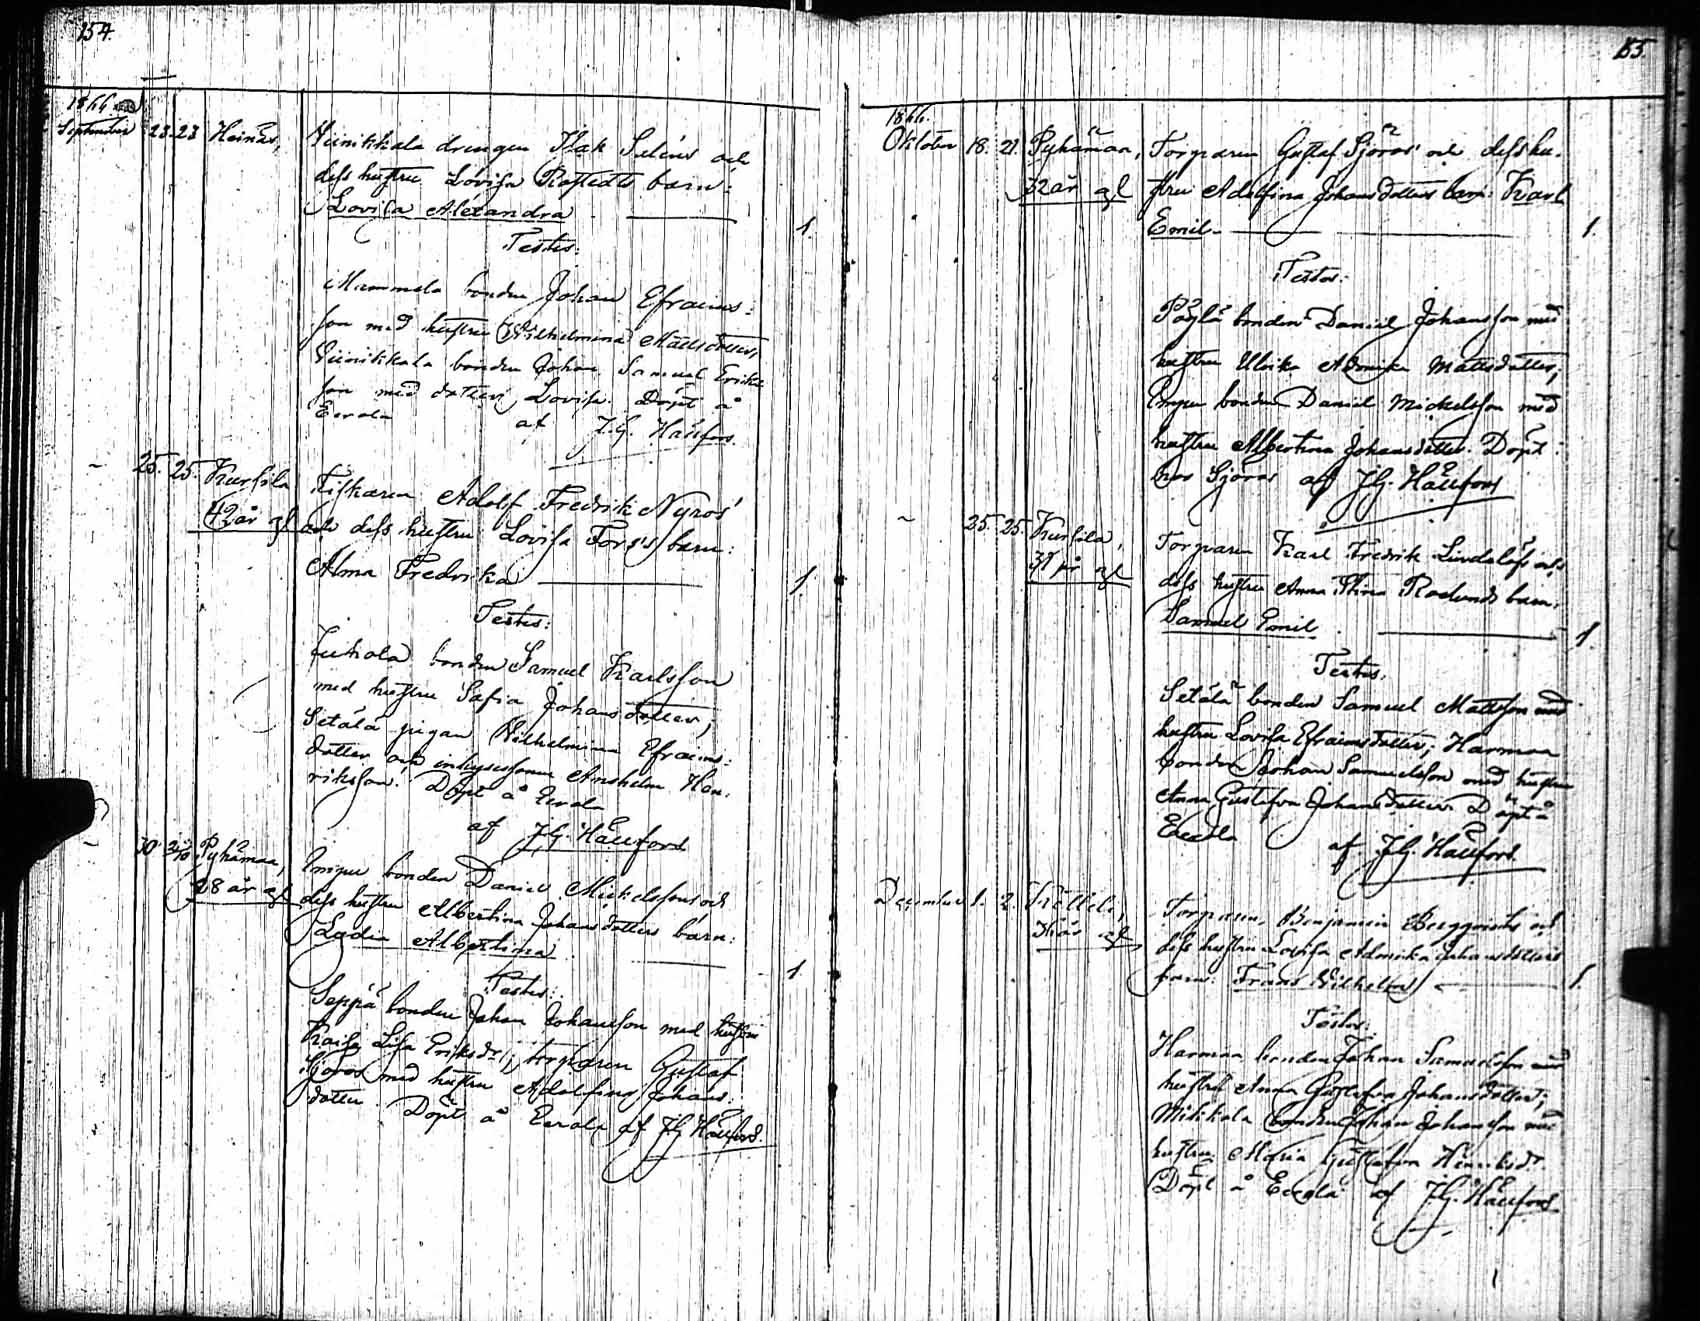 154.
1866
September 23. 23 Heinäs,
Viinikkala drengen Isak Seléns och
dess hustru Lovisa Rostedts barn:
Lovisa Alexandra
1.
Testes:
Mammela bonden Johan Efraims-
son med hustru Wilhelmina Mattsdotter,
Viinikkala bonden Johan Samuel Eriks
son med dotter Lovisa. Döpt å
Eerola af J.G. Hällfors.
25. 25. Kursila
42 år gl
Fiskaren Adolf Fredrik Nyros'
och dess hustru Lovisa Fors's barn:
Alma Fredrika
1.
Testes:
Juhala bonden Samuel Karlsson
med hustru Safia Johansdotter;
Setälä pigan Wilhelmina Efraims-
dotter och inhysessonen Anshelm Hen-
riksson. Döpt å Eerola
af J.G. Hällfors
30. 2/10 Pyhämaa,
28 år gl
Impu bonden Daniel Mickelssons och
dess hustru Albertina Johansdotters barn:
Ladia Albertina
1.
Testes:
Seppä bonden Johan Johansson med hustru
Kaisa Lisa Eriksdr; torparen Gustaf
Sjöros med hustru Adolfina Johans-
dotter. Döpt å Eerola af J.G. Hällfors.
155.
1866.
Oktober 18. 21. Pyhämaa,
32 år gl
Torparen Gustaf Sjöros' och dess hu-
stru Adolfina Johansdotters barn: Karl
Emil
1.
Testes:
Päylä bonden Daniel Johansson med
hustru Ulrika Adamika Mattsdotter;
Impu bonden Daniel Mickelsson med
hustru Albertina Johansdotter. Döpt
hos Sjöros af J.G. Hällfors
25. 25. Kursila,
år gl
Torparen Karl Fredrik Lindelöfs och
dess hustru Anna Stina Roslunds barn:
Samuel Emil
1
Testes.
Setälä bonden Samuel Mattsson med
hustru Lovisa Efraimsdotter; Harmaa
bonden Johan Samuelsson med hustru
Anna Gustafva Johansdotter. Döpt å
Eerola
af J.G. Hällfors.
December 1. 2. Kölleli,
år gl
Torparen Benjamin Bergqvists och
dess hustru Lovisa Adamika Johansdotters
barn: Frans Wilhelm
1.
Testes:
Harmaa bonden Johan Samuelsson med
hustru Anna Gustafva Johansdotter;
Mikkola bonden Johan Johansson med
hustru Maria Gustafva Henriksdr.
Döpt å Eerola af J.G. Hällfors